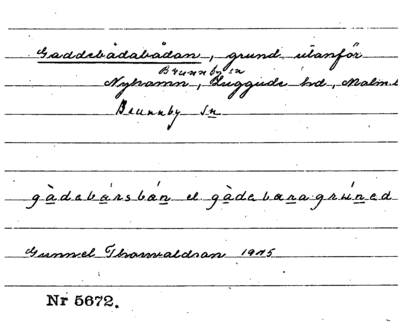 Gaddebådabådan, grund utanför
Brunnby sn
Nyhamn, Luggude hd, Malm
Brunnby sn
gàdebársbán el gàdebaragrúned
Gunnel Thorwaldson 1975
Nr 5672.